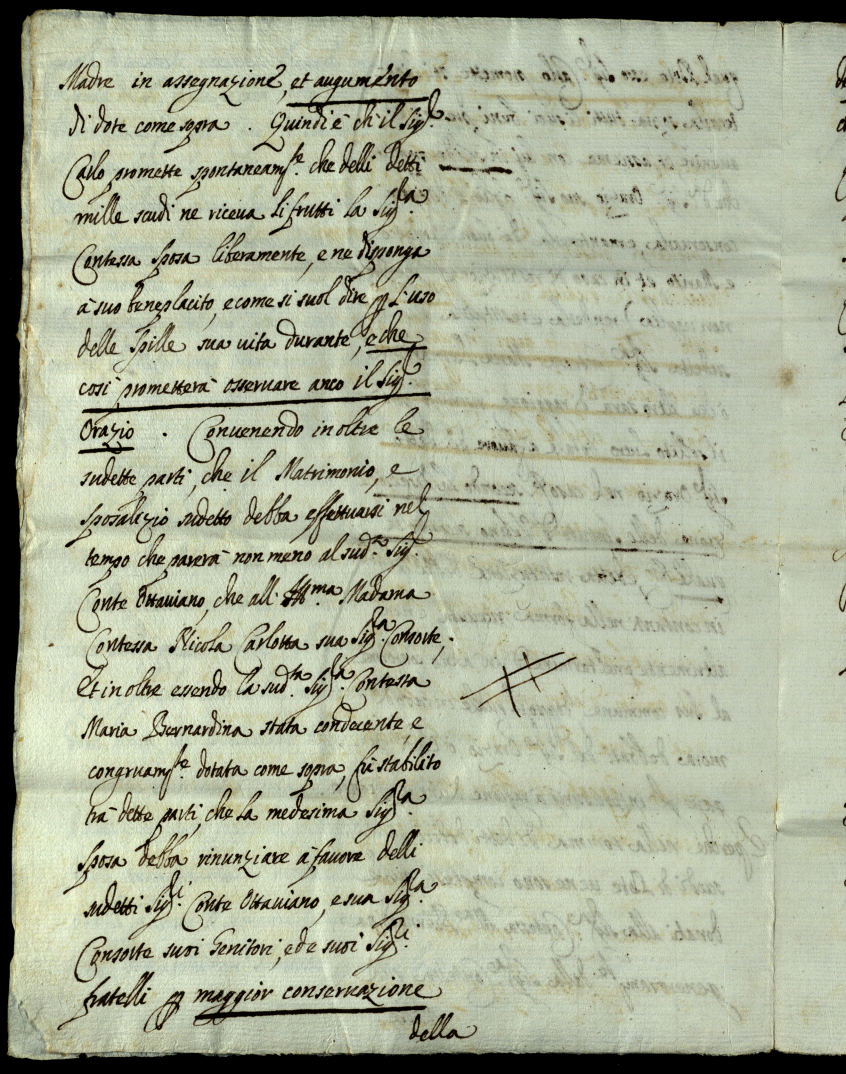 Madre in assegnazione, et augumento
di dote come sopra . Quindi è ch'il Sigr.
Carlo promette spontaneamte. che delli detti
mille scudi ne riceva li frutti la Sigra.
Contessa Sposa liberamente, e ne disponga
à suo beneplacito, e come si suol dire p l'uso
delle Spille sua vita durante, e che
così prometterà osservare anco il Sigr.
Orazio . Convenendo inoltre le
sudette parti, che il Matrimonio, e
sposalizio sudetto debba effettuarsi nel
tempo che parerà non meno al sudo. Sigr.
Conte Ottaviano, che all' Illma. Madama
Contessa Nicola Carlotta sua Sigra. Consorte,
Et in oltre essendo la suda. Sigra. Contessa
Maria Bernardina stata condecente, e
congruamte. dotata come sopra, fù stabilito
trà dette parti, che la medesima Sigra.
Sposa debba rinunziare à favore delli
sudetti Sigri. Conte Ottaviano, e sua Sigra.
Consorte suoi Genitori, ed e suoi Sigri.
fratelli p maggior conservazione
della